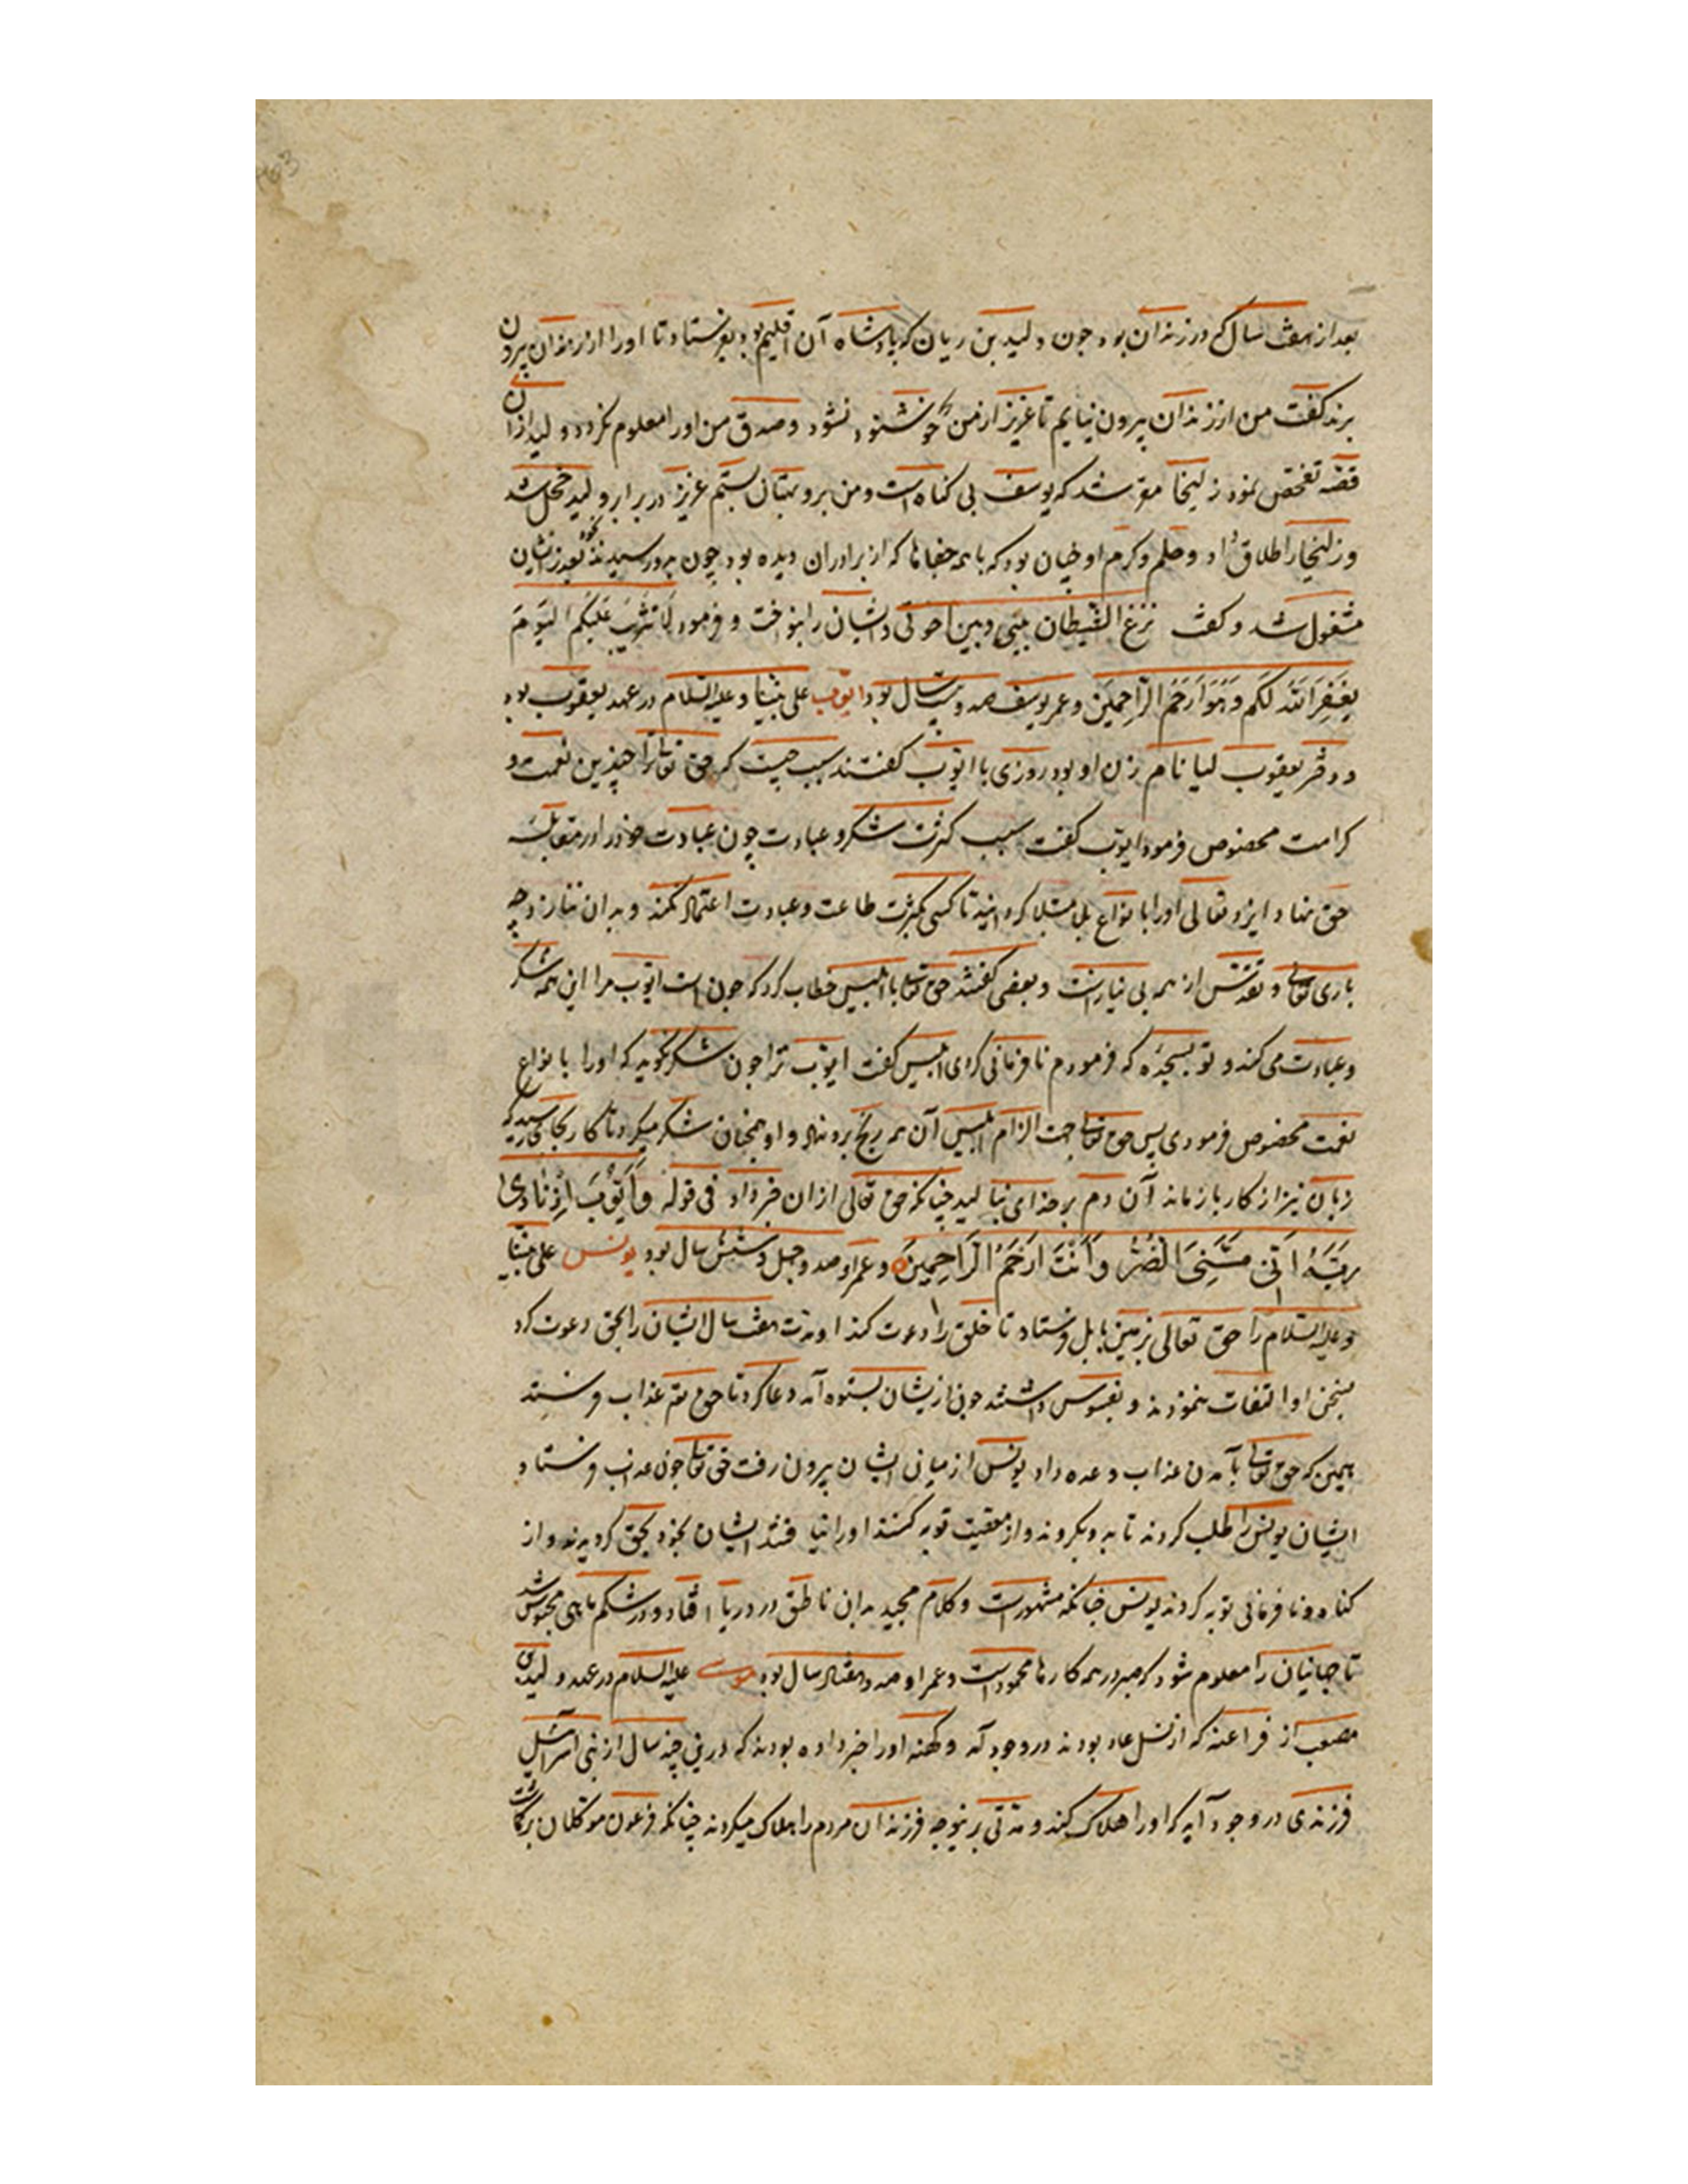 بعد از هفت سال که در زندان بود چون ولید بن ریان که پادشاه آن اقلیم بود بفرستاد تا او را از زندان بیرون
برند گفت من از زندان بیرون نیایم تا عزیز از من خوشنود نشود و صدق من او را معلوم نکردد ولید از آن
قصّه تفحّص نمود زلیخا مقر شد که یوسف بی کناه است و من برو بهتان بستم عزیز در برابر ولید خجل شد
و زلیخا را طلاق داد و حلم و کرم او چنان بود که با همه جفاها که از برادران دیده بود چون بدو رسیدند بعذر ایشان
مشغول شد و کفت نزغ الشیطان بینی و بین اخوتی و ایشان را بنواخت و فرمود لَا تَثْرِیبَ عَلَیْکُمُ الْیَوْمَ
یَغْفِرُ اللّٰهُ لَکُمْ وَهُوَ اَرْحَمُ الرَّاحِمِینَ و عمر یوسف صد و بیست سال بود ایّوب علی نبیّنا و علیه السّلام در عهد یعقوب بود
و دختر یعقوب لیا نام زن او بود روزی با ایّوب کفتند سبب چیست که حق تعالی ترا چندین نعمت و
کرامت مخصوص فرمود ایوب کفت سبب کثرت شکر و عبادت چون عبادت خود را در مقابله
حق نهاد ایزد تعالی او را با نواع بلا مبتلا کردانید تا کسی بکثرت طاعت و عبادت اعتماد نکند و بدان ننازد چه
باری تعالی و تقدّس از همه بی نیاز است و بعضی کفتند حق تعالی با ابلیس خطاب کرد که چون است ایّوب مرا این همه شکر
و عبادت می کند و تو بسجدهٔ که فرمودم نا فرمانی کردی ابلیس کفت ایّوب ترا چون شکر نکوید که او را با نواع
نعمت مخصوص فرمودی پس حق تعالی جهت الزام ابلیس آن همه رنج برو نهاد و او همچنان شکر میکرد تا کار بجایی رسید که
زبان نیز از کار باز ماند آن دم بر خدای بنالید چنانکه حق تعالی از ان خبر داد فی قوله وَاَیُّوبَ اِذْ نَادٰی
رَبَّهُ اَنِّی مَسَّنِیَ الضُّرُّ وَاَنْتَ اَرْحَمُ الرَّاحِمِینَ و عمر او صد و چهل و شش سال بود یونس علی نبیّنا
و علیه السّلام را حق تعالی بزمین بابل فرستاد تا خلق را دعوت کند او مدت هفت سال ایشان را بحق دعوت کرد
بسخن او التفات ننمودند و بفسوس داشتند چون از یشان بستوه آمد دعا کرد تا حق تع عذاب فرستد
همین که حق تعالی بآمدن عذاب وعده داد یونس از میانی ایشان بیرون رفت حق تعالی چون عذاب فرستاد
ایشان یونس را طلب کردند تا بدو بکروند و از معصیت توبه کنند او را نیافتند ایشان بخود بحق کرویدند و از
کناه و نا فرمانی توبه کردند یونس چنانکه مشهور است و کلام مجید بدان ناطق در دریا افتاد و در شکم ماهی محبوس شد
تا جهانیان را معلوم شود که صبر در همه کارها محمود است و عمر او صد و هفتاد سال بود موسی علیه السلام در عهد ولید بن
مصعب از فراعنه که از نسل عاد بودند در وجود آمد و کهنه او را خبر داده بودند که درین چند سال از بنی اسرائیل
فرزندی در وجود آید که او را هلاک کند و مدتی برینوجه فرزندان مردم را هلاک میکردند چنانکه فرعون موکلان بر کماشت